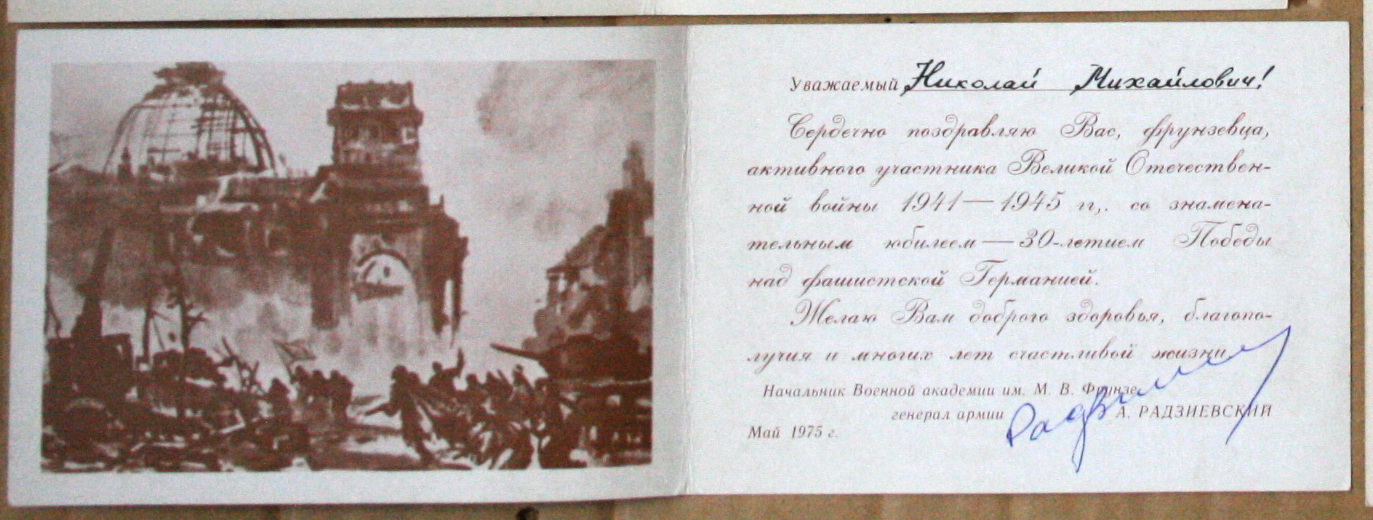 Уважаемый Николай Михайлович!
Сердечно поздравляю Вас, фрунзевца,
активного участника Великой Отечествен-
ной войны 1941—1945 гг,. со знамена-
тельным юбилеем—30-летием Победы
над фашистской Германией.
Желаю Вам доброго здоровья, благопо-
лучия и многих лет счастливой жизни.
Начальник Военной академии им. М. В. Фрунзе
генерал армии А. РАДЗИЕВСКИЙ
Май 1975 г.